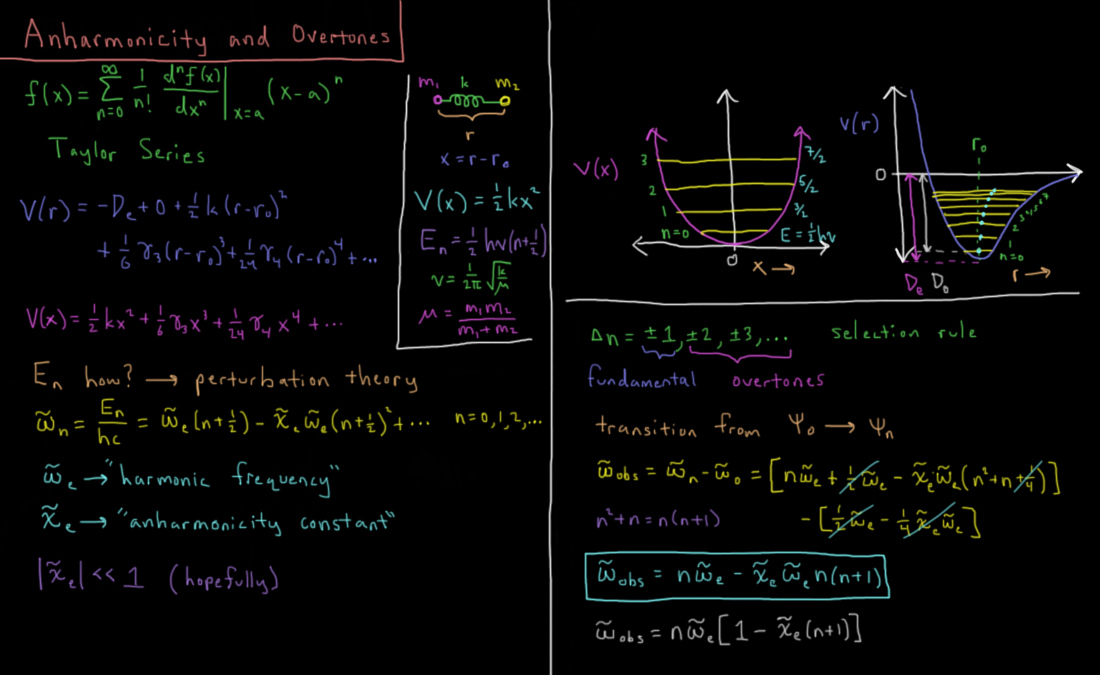 Anharmonicity and Overtones
f(x) = ∑_{n=0}^{∞} 1/n! dⁿf(x)/dxⁿ |_{x=a} (x-a)ⁿ
Taylor Series
V(r) = -Dₑ + 0 + ½ k (r-r₀)²
+ 1/6 γ₃ (r-r₀)³ + 1/24 γ₄ (r-r₀)⁴ + ...
V(x) = ½ kx² + 1/6 γ₃ x³ + 1/24 γ₄ x⁴ + ...
Eₙ how? → perturbation theory
ω̃ₙ = Eₙ/hc = ω̃ₑ(n+½) - x̃ₑ ω̃ₑ(n+½)² + ... n=0,1,2,...
ω̃ₑ → "harmonic frequency"
x̃ₑ → "anharmonicity constant"
|x̃ₑ| << 1 (hopefully)
m₁ k m₂
r
x = r - r₀
V(x) = ½ kx²
Eₙ = ½ hν(n+½)
ν = 1/2π √(k/μ)
μ = m₁m₂/(m₁+m₂)
V(x)
3 7/2
2 5/2
1 3/2
n=0 E = ½ hν
0 x →
V(r)
r₀
0
2 3 4 5 6 7
1
n=0
Dₑ D₀ r →
Δn = ±1, ±2, ±3, ... selection rule
fundamental overtones
transition from Ψ₀ → Ψₙ
ω̃obs = ω̃ₙ - ω̃₀ = [nω̃ₑ + ½ω̃ₑ - x̃ₑω̃ₑ(n²+n+¼)]
n²+n = n(n+1) - [½ω̃ₑ - ¼x̃ₑω̃ₑ]
ω̃obs = nω̃ₑ - x̃ₑω̃ₑ n(n+1)
ω̃obs = nω̃ₑ[1 - x̃ₑ(n+1)]